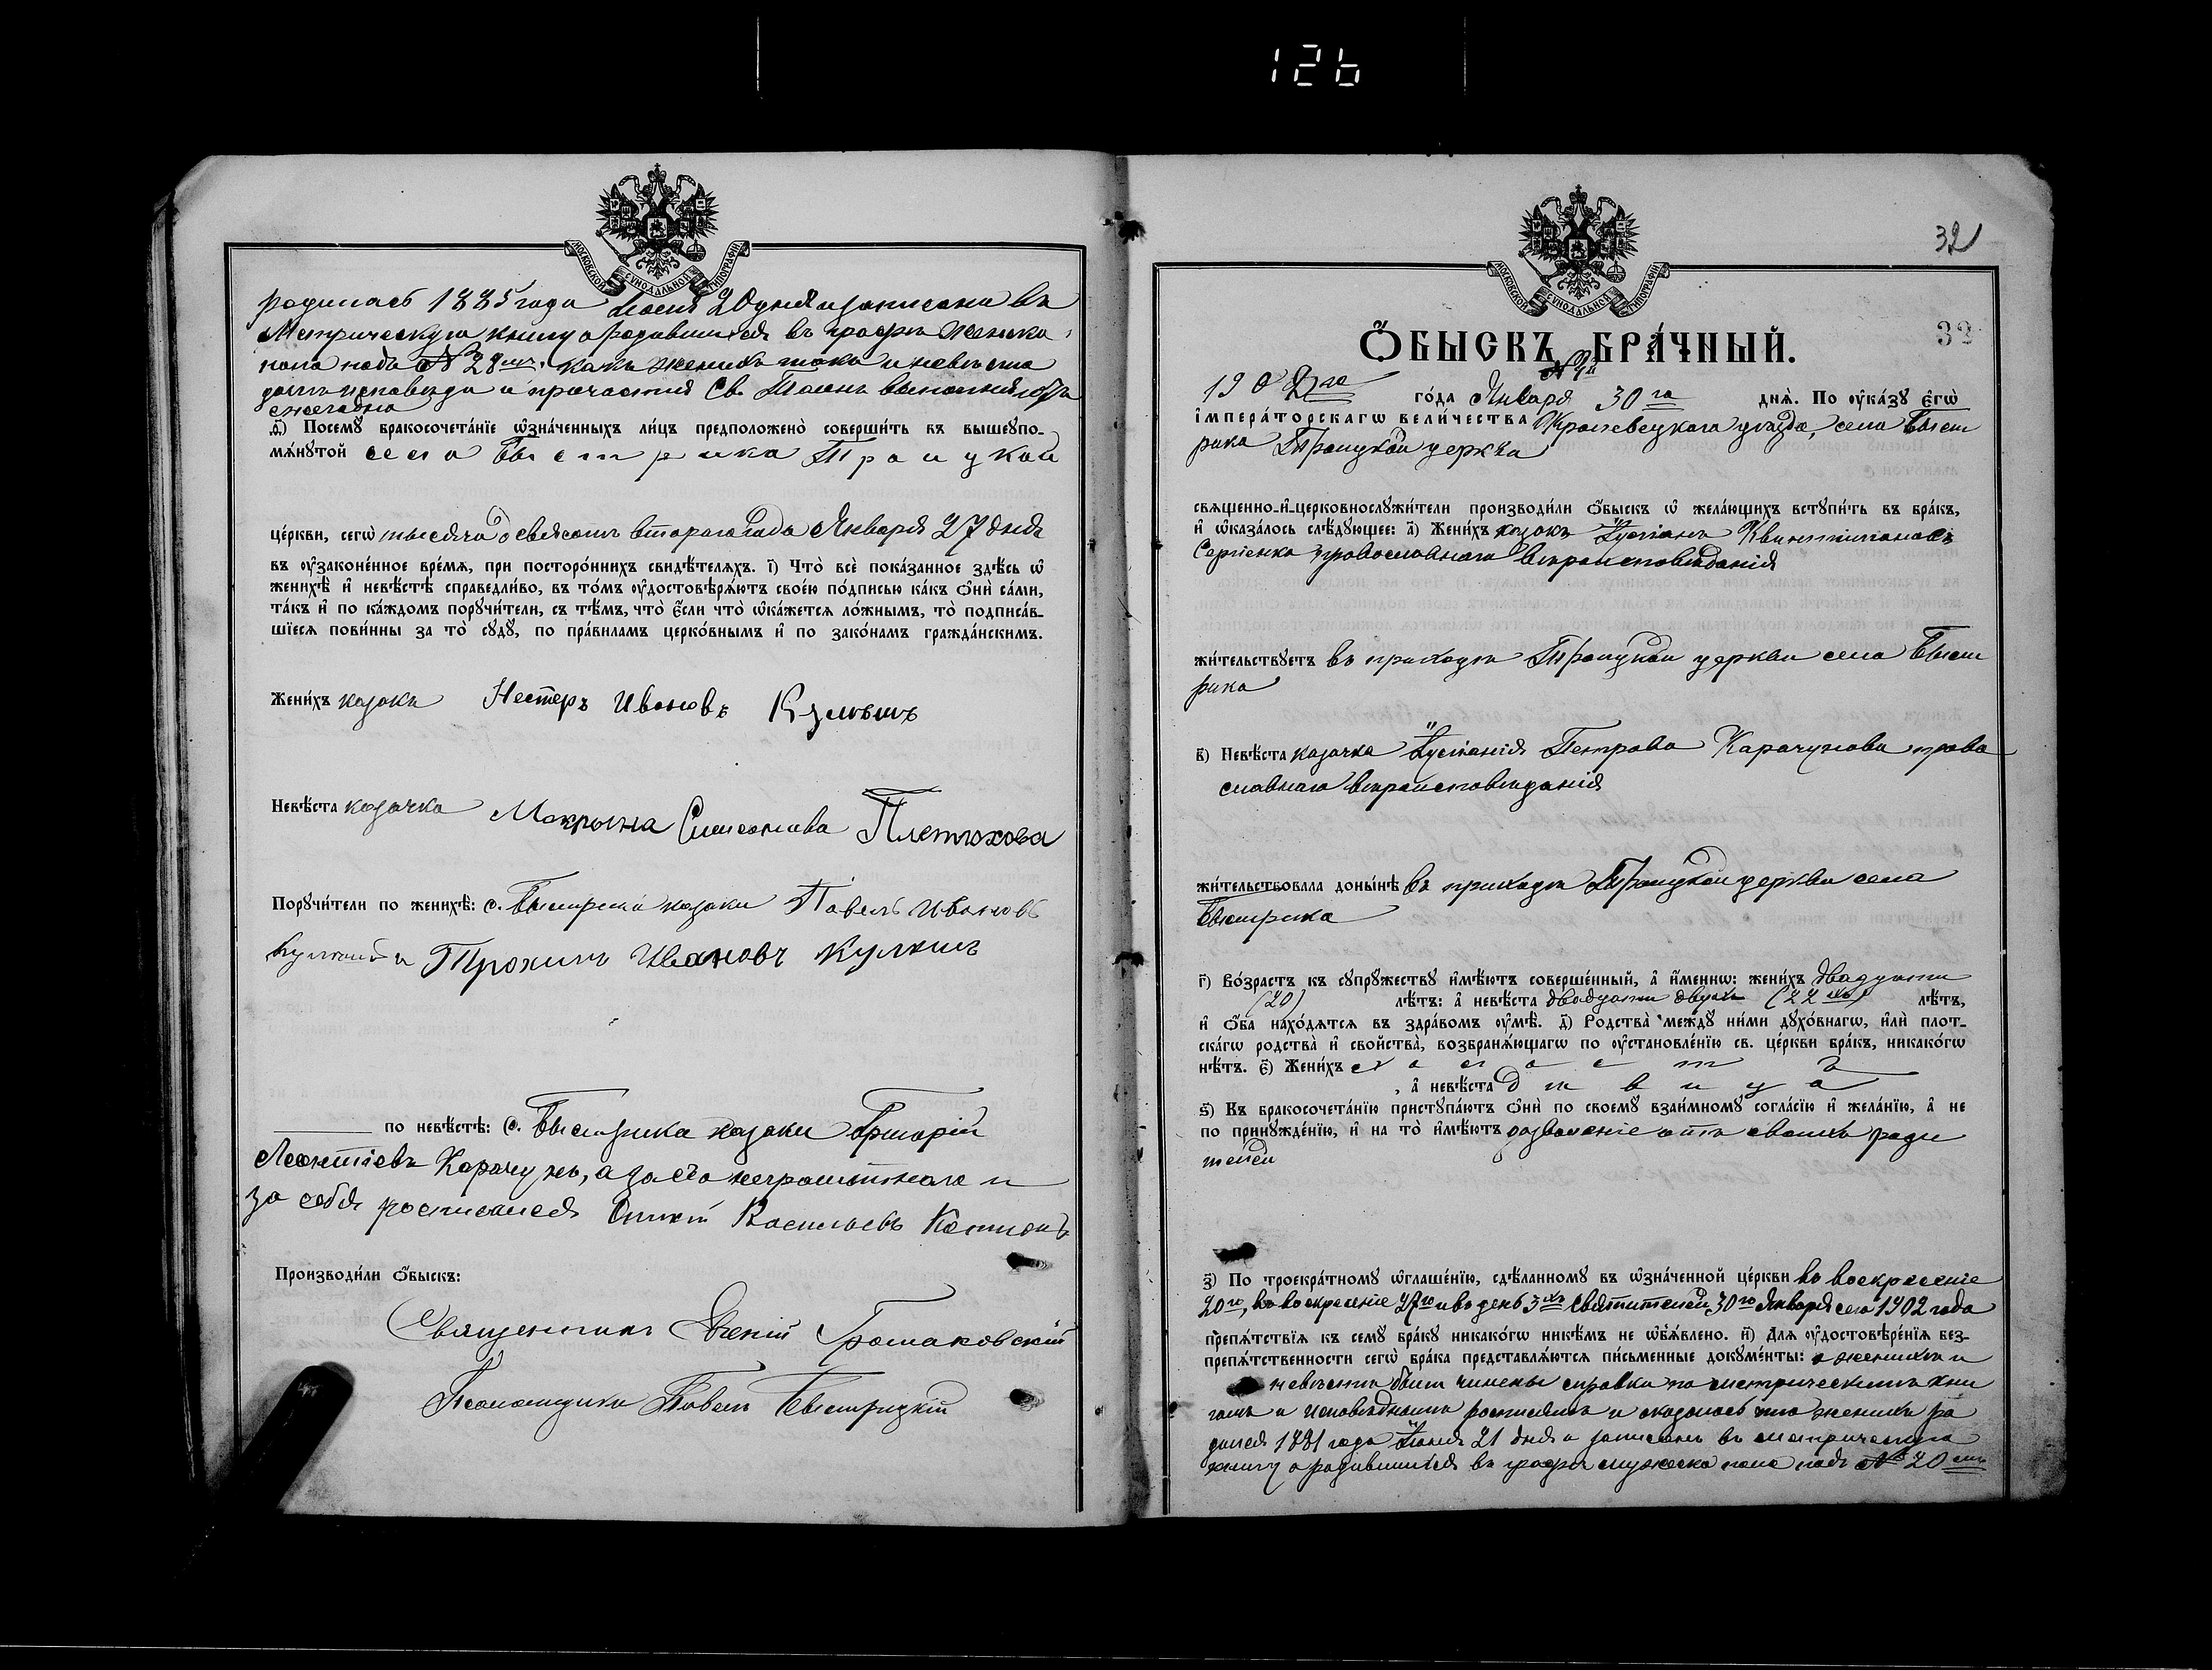 126
МОСКОВСКОЙ СУНОДАЛЬНОЙ ТИПОГРАФІИ
родилась 1885 года Іюля 20 дня и записана въ
Метрическую книгу о родившихся въ графѣ женска
пола подъ № 28мъ. какъ женихъ такъ и невѣста
долгъ исповѣди и причастія Св. Таинъ
ежегодно
Посемꙋ бракосочета́нїе ѡ҆зна́ченныхъ ли́цъ предположено̀ соверши́ть въ вышеꙋпо-
мѧ́нꙋтой села Быстрика Троицкой
це́ркви, сегѡ̀ тысяча девясотъ второго года Января 27 дня
въ ᲂу҆зако́ненное вре́мѧ, при посторо́ннихъ свидѣ́телѧхъ. і҃) Что̀ всѐ пока́занное здѣ́сь ѡ҆
женихѣ̀ и҆ невѣ́стѣ справедли́во, въ то́мъ ᲂу҆достовѣрѧ́ютъ свое́ю по́дписью ка́къ ѻ҆нѝ са́ми,
та́къ и҆ по ка́ждомъ порꙋчи́тели, съ тѣ́мъ, что̀ є҆́сли что̀ ѡ҆ка́жетсѧ ло́жнымъ, то̀ подписа́в-
шїесѧ пови́нны за то̀ сꙋдꙋ̀, по пра́виламъ церко́внымъ и҆ по зако́намъ гражда́нскимъ.
Жени́хъ казакъ Нестеръ Ивановъ
Невѣ́ста казачка Макрына Симонова Плетюхова
Порꙋчи́тели по женихѣ̀: с. Быстрика казаки Павелъ Ивановъ
и Трохимъ Ивановъ
по невѣ́стѣ: с. Быстрика казаки Григорій
Леонтіевъ Карачунъ, а за его неграмотнаго и
за себя росписался Васильевъ
Производи́ли ѻ҆́быскъ:
Священникъ Евгеній Громаковскій
Псаломщикъ Павелъ Быстрицкій
МОСКОВСКОЙ СУНОДАЛЬНОЙ ТИПОГРАФІИ
32
32
Ѻ҆́БЫСКЪ БРА́ЧНЫЙ.
1902го го́да Января 30го днѧ̀. По ᲂу҆ка́зꙋ є҆гѡ̀
і҆мпера́торскагѡ вели́чества Кролевецкаго уѣзда, села Быст
рика Троицкой церкви
свѧще́нно-и҆-церковнослꙋжи́тели производи́ли ѻ҆́быскъ ѡ҆ жела́ющихъ встꙋпи́ть въ бра́къ,
и҆ ѡ҆каза́лось слѣ́дꙋющее: а҃) Жени́хъ казакъ Іуліанъ Квинтиліановъ
Сергіенко православнаго вѣроисповѣданія
жи́тельствꙋетъ въ приходѣ Троицкой церкви села Быст
рика
в҃) Невѣ́ста казачка Іуліанія Петрова Карачунова право
славнаго вѣроисповѣданія
жи́тельствовала доны́нѣ въ приходѣ Троицкой церкви села
Быстрика
г҃) Во́зрастъ къ сꙋпрꙋ́жествꙋ и҆мѣ́ютъ соверше́нный, а҆ и҆́меннѡ: жени́хъ двадцати
(20) лѣ́тъ: а҆ невѣ́ста двадцати двухъ (22хъ) лѣ́тъ,
и҆ ѻ҆́ба нахо́дѧтсѧ въ здра́вомъ ᲂу҆мѣ̀. д҃) Родства̀ междꙋ̀ ни́ми дꙋхо́внагѡ, и҆лѝ плот-
ска́гѡ родства̀ и҆ сво́йства, возбранѧ́ющагѡ по ᲂу҆становле́нїю св. це́ркви бра́къ, никако́гѡ
нѣ́тъ. є҃) Жени́хъ холостъ
, а҆ невѣ́ста дѣвица
ѕ҃) Къ бракосочета́нїю пристꙋпа́ютъ ѻ҆нѝ по своемꙋ̀ взаи́мномꙋ согла́сїю и҆ жела́нїю, а҆ не
по принꙋжде́нїю, и҆ на то̀ и҆мѣ́ютъ дозволеніе отъ своихъ роди
телей
з҃) По троекра́тномꙋ ѡ҆глаше́нїю, сдѣ́ланномꙋ въ ѡ҆зна́ченной це́ркви въ воскресеніе
20го, въ воскресеніе 27го и въ день 3хъ Святителей 30го Января сего 1902 года
препѧ́тствїѧ къ семꙋ̀ бра́кꙋ никако́гѡ никѣ́мъ не ѡ҆б̾ѧ́влено. и҃) Для ᲂу҆достовѣре́нїѧ без-
препѧ́тственности сегѡ̀ бра́ка представлѧ́ютсѧ пи́сьменные докꙋме́нты: о женихѣ и
невѣстѣ были чинены справки по метрическимъ кни
гамъ и исповѣднымъ росписямъ и оказалось что женихъ ро
дился 1881 года Іюня 21 дня и записанъ въ метрическую
книгу о родившихся въ графѣ мужеска пола подъ № 20мъ